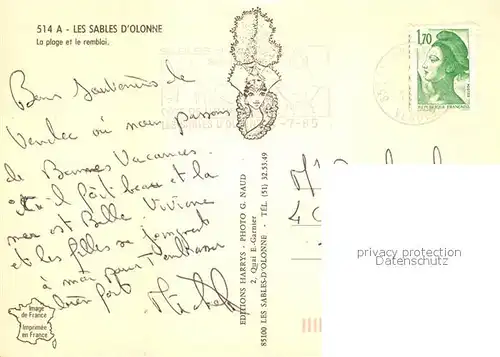 514 A - LES SABLES D'OLONNE
La plage et le remblai.
Bons Souvenirs de
Vendée où nous passons
de Bonnes Vacances.
il fait beau et la
mer est Belle Viviane
et les filles se joignent
à moi pour t'embrasser
bien fort
Michel
Image
de France
Imprimée
en France
EDITIONS HARRYS - PHOTO G. NAUD
2, Quai E.-Garnier
85100 LES SABLES-D'OLONNE TÉL. (51) 32.53.49
-7-85
1,70
REPUBLIQUE FRANÇAISE
privacy protection
Datenschutz